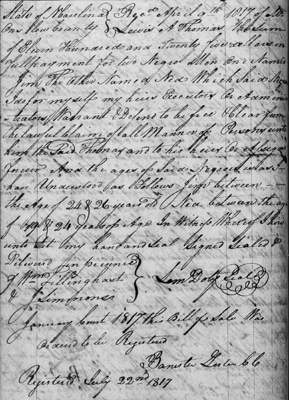 State of N Carolina } Recd April 9th 1817 of
Onslow County } Lewis A Thomas The Sum
of Eleven Hundred and Twenty Five Dollars in
Full payment for two Negroe Men One Named
Jim The Other Named Ned Which Said Negroes
I do for myself my heirs Executors & Admini
strators Warrant & Defend to be free & Clear from
the lawful claims of all Manner of Persons unto
him the Said Thomas and to his heirs
forever And the ages of Said Negroes
have Understood as Follows Jim between
the Age of 24 & 26 years old & Ned between the age
of & 24 years of Age In Witness Whereof I have
unto Set my hand and Seal Signed Sealed &
Delivered in presence
of Wm Fillinghast
J Simmons
Seal
January Court 1817 this Bill of Sale Was
ordered to be Registered
Banister Lester CC
Registered July 22nd 1817